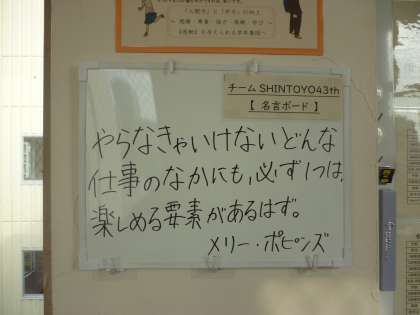 チーム SHINTOYO43th
【 名言ボード 】
やらなきゃいけないどんな
仕事のなかにも、必ず1つは、
楽しめる要素があるはず。
メリー・ポピンズ